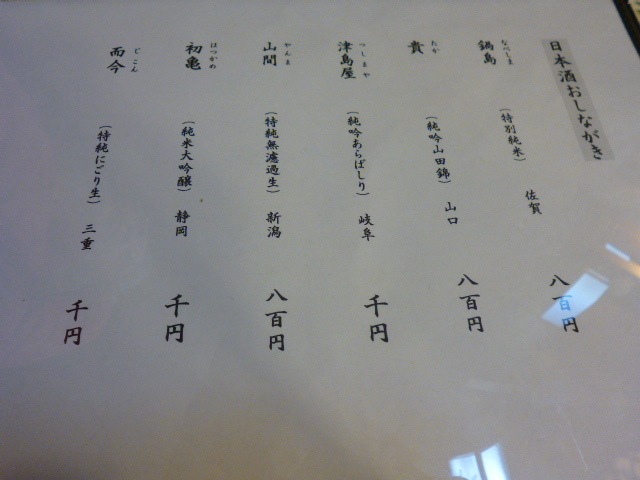 日本酒おしながき
鍋島 なべしま （特別純米） 佐賀 八百円
貴 たか （純吟山田錦） 山口 八百円
津島屋 つしまや （純吟あらばしり） 岐阜 千円
山間 やんま （特純無濾過生） 新潟 八百円
初亀 はつかめ （純米大吟醸） 静岡 千円
而今 じこん （特純にごり生） 三重 千円